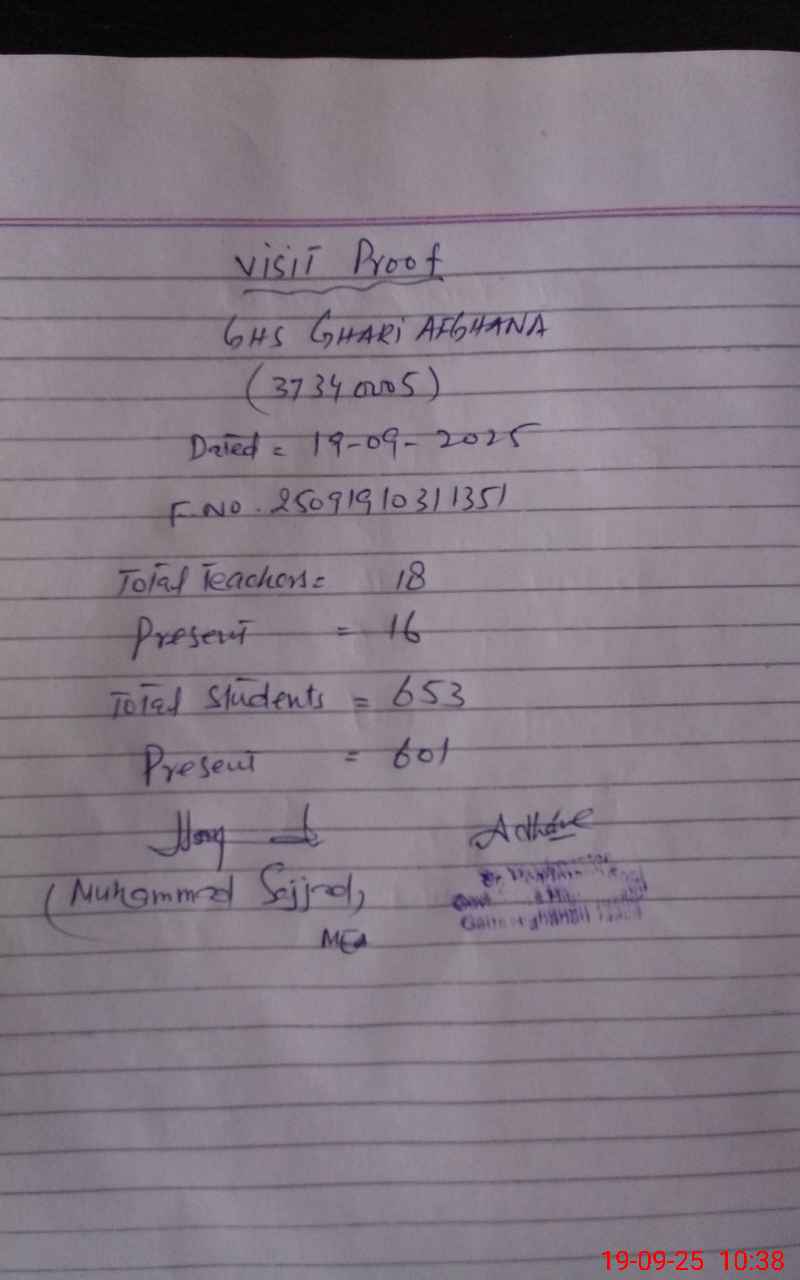 Visit Proof
GHS GHARI AFGHANA
(37340005)
Dated = 19-09-2025
F.No. 25091910311351
Total Teachers = 18
Present = 16
Total Students = 653
Present = 601
(Muhammad Sajjad,
MEA
19-09-25 10:38